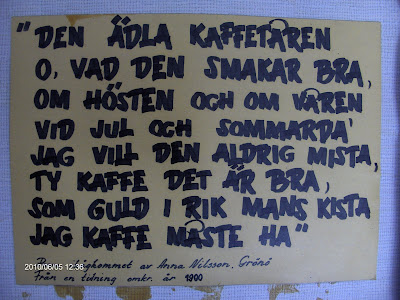 "DEN ÄDLA KAFFETÅREN
O, VAD DEN SMAKAR BRA,
OM HÖSTEN OCH OM VÅREN
VID JUL OCH SOMMARDA'
JAG VILL DEN ALDRIG MISTA,
TY KAFFE DET ÄR BRA,
SOM GULD I RIK MANS KISTA
JAG KAFFE MÅSTE HA"
av Anna Nilsson, Grönö
från en tidning omkr. år 1900
2010/06/05 12:36